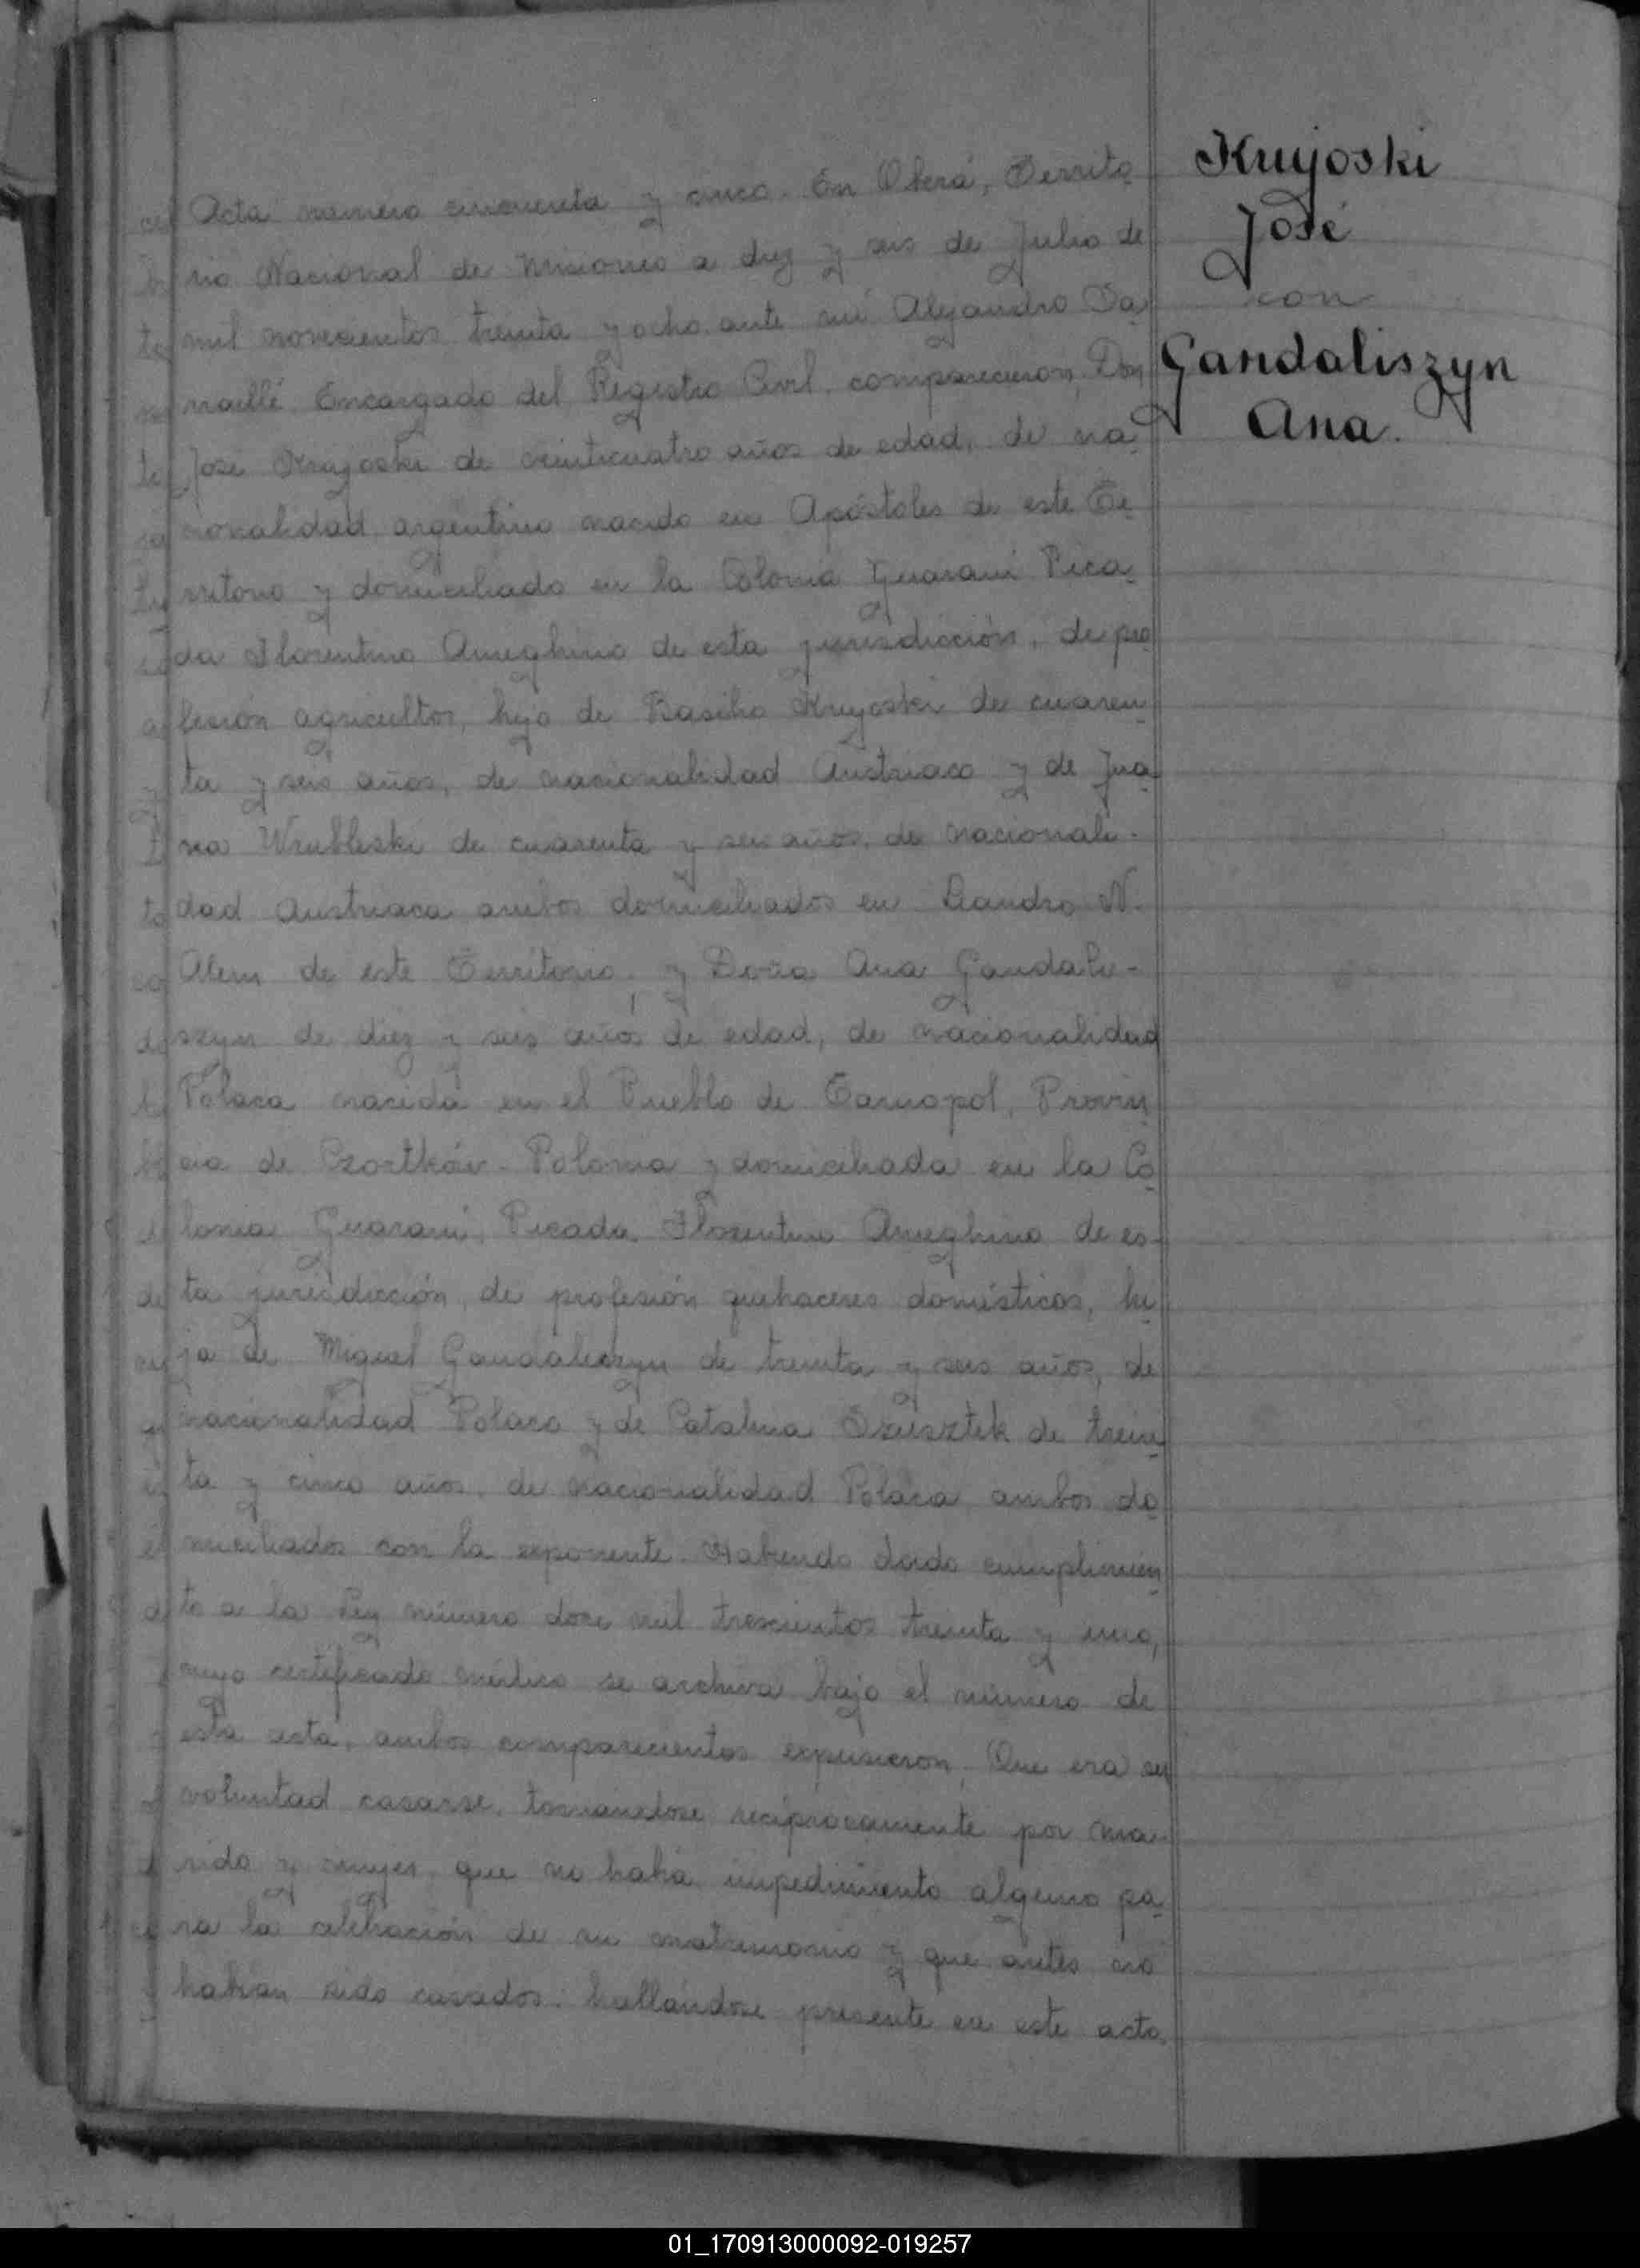 Krujoski
José
con
Gandaliszyn
Ana.
Acta número cincuenta y cinco. En Oberá, Territo
rio Nacional de Misiones a diez y seis de Julio de
mil novecientos treinta y ocho, ante mí Alejandro
Encargado del Registro Civil, comparecieron, Don
José Krujoski de veinticuatro años de edad, de na
cionalidad argentino nacido en Apóstoles de este Te
rritorio y domiciliado en la Colonia Guaraní Pica
da Florentino Ameghino de esta jurisdicción, de pro
fesión agricultor, hijo de Basilio Krujoski de cuaren
ta y seis años, de nacionalidad Austriaco y de Jua
na Wrubleski de cuarenta y seis años, de nacionali-
dad Austriaca ambos domiciliados en Leandro N.
Alem de este Territorio, y Doña Ana Gandali-
szyn de diez y seis años de edad, de nacionalidad
Polaca nacida en el Pueblo de Tarnopol, Provin
cia de Czortków - Polonia y domiciliada en la Co
lonia Guaraní, Picada Florentino Ameghino de es-
ta jurisdicción, de profesión quehaceres domésticos, hi
ja de Miguel Gandaliszyn de treinta y seis años, de
nacionalidad Polaco y de Catalina de trein
ta y cinco años, de nacionalidad Polaca, ambos do
miciliados con la exponente. Habiendo dado cumplimien
to a la Ley número doce mil trescientos treinta y uno,
cuyo certificado médico se archiva bajo el número de
esta acta, ambos comparecientes expusieron: Que era su
voluntad casarse, tomandose recíprocamente por ma-
rido y mujer, que no había impedimento alguno pa
ra la celebración de su matrimonio y que antes no
habían sido casados: hallándose presente en este acto
01_170913000092-019257